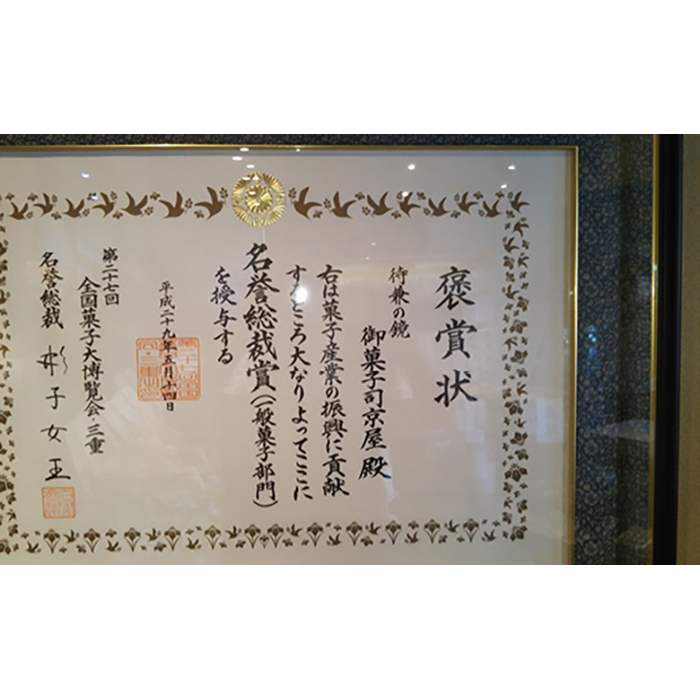 褒賞状
待兼の鏡
御菓子司京屋殿
右は菓子産業の振興に貢献
するところ大なりよってここに
名誉総裁賞(一般菓子部門)
を授与する
平成二十九年五月十四日
第二十七回
全国菓子大博覧会・三重
名誉総裁 彬子女王